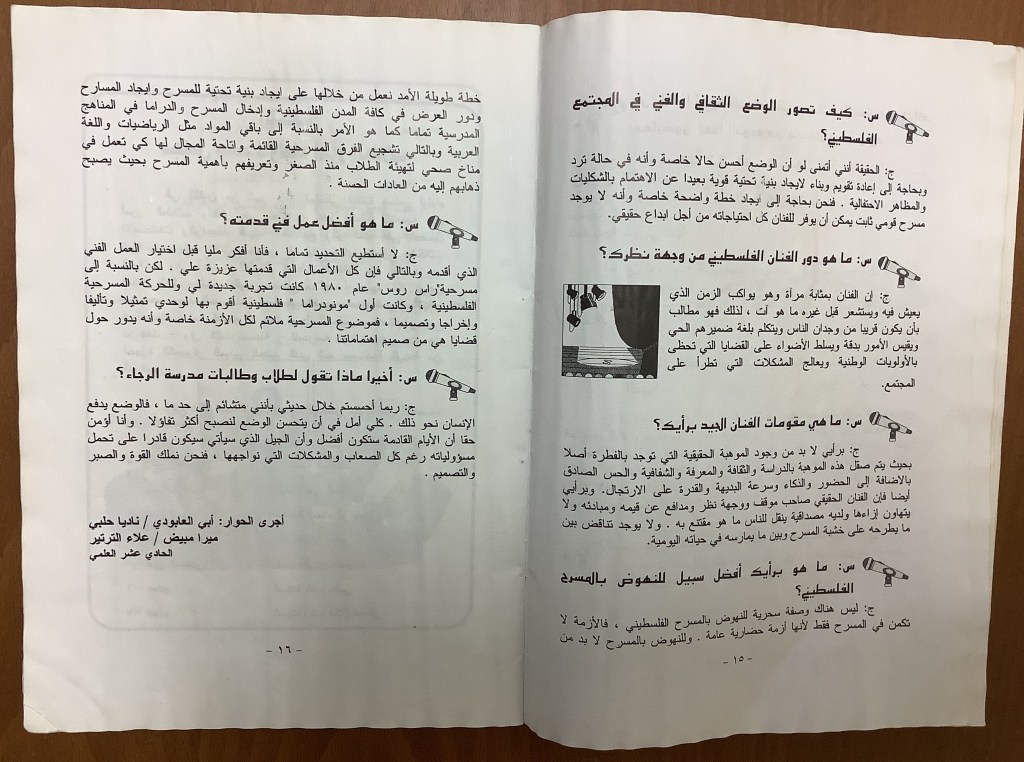 س: كيف تصور الوضع الثقافي والفني في المجتمع
الفلسطيني؟
ج: الحقيقة أنني أتمنى لو أن الوضع أحسن حالا خاصة وأنه في حالة ترد
وبحاجة إلى إعادة تقويم وبناء لايجاد بنية تحتية قوية بعيدا عن الاهتمام بالشكليات
والمظاهر الاحتفالية . فنحن بحاجة إلى ايجاد خطة واضحة خاصة وأنه لا يوجد
مسرح قومي ثابت يمكن أن يوفر للفنان كل احتياجاته من أجل ابداع حقيقي.
س: ما هو دور الفنان الفلسطيني من وجهة نظرك؟
ج: إن الفنان بمثابة مرآة وهو يواكب الزمن الذي
يعيش فيه ويستشعر قبل غيره ما هو آت ، لذلك فهو مطالب
بأن يكون قريبا من وجدان الناس ويتكلم بلغة ضميرهم الحي
ويقيس الأمور بدقة ويسلط الأضواء على القضايا التي تحظى
بالأولويات الوطنية ويعالج المشكلات التي تطرأ على
المجتمع.
س: ما هي مقومات الفنان الجيد برأيك؟
ج: برأيي لا بد من وجود الموهبة الحقيقية التي توجد بالفطرة أصلا
بحيث يتم صقل هذه الموهبة بالدراسة والثقافة والمعرفة والشفافية والحس الصادق
بالاضافة إلى الحضور والذكاء وسرعة البديهة والقدرة على الارتجال. وبرأيي
أيضا فإن الفنان الحقيقي صاحب موقف ووجهة نظر ومدافع عن قيمه ومبادئه ولا
يتهاون إزاءها ولديه مصداقية ينقل للناس ما هو مقتنع به . ولا يوجد تناقض بين
ما يطرحه على خشبة المسرح وبين ما يمارسه في حياته اليومية.
س: ما هو برأيك أفضل سبيل للنهوض بالمسرح
الفلسطيني؟
ج: ليس هناك وصفة سحرية للنهوض بالمسرح الفلسطيني ، فالأزمة لا
تكمن في المسرح فقط لأنها أزمة حضارية عامة . وللنهوض بالمسرح لا بد من
- ١٥ -
خطة طويلة الأمد نعمل من خلالها على ايجاد بنية تحتية للمسرح وايجاد المسارح
ودور العرض في كافة المدن الفلسطينية وإدخال المسرح والدراما في المناهج
المدرسية تماما كما هو الأمر بالنسبة إلى باقي المواد مثل الرياضيات واللغة
العربية وبالتالي تشجيع الفرق المسرحية القائمة واتاحة المجال لها كي تعمل في
مناخ صحي لتهيئة الطلاب منذ الصغر وتعريفهم بأهمية المسرح بحيث يصبح
ذهابهم إليه من العادات الحسنة .
س: ما هو أفضل عمل فني قدمته؟
ج: لا أستطيع التحديد تماما ، فأنا أفكر مليا قبل اختيار العمل الفني
الذي أقدمه وبالتالي فإن كل الأعمال التي قدمتها عزيزة علي . لكن بالنسبة إلى
مسرحية"راس روس" عام ١٩٨٠ كانت تجربة جديدة لي وللحركة المسرحية
الفلسطينية ، وكانت أول "مونودراما " فلسطينية أقوم بها لوحدي تمثيلا وتأليفا
وإخراجا وتصميما ، فموضوع المسرحية ملائم لكل الأزمنة خاصة وأنه يدور حول
قضايا هي من صميم اهتماماتنا .
س: أخيرا ماذا تقول لطلاب وطالبات مدرسة الرجاء؟
ج: ربما أحسستم خلال حديثي بأنني متشائم إلى حد ما ، فالوضع يدفع
الإنسان نحو ذلك . كلي أمل في أن يتحسن الوضع لنصبح أكثر تفاؤلا . وأنا أؤمن
حقا أن الأيام القادمة ستكون أفضل وأن الجيل الذي سيأتي سيكون قادرا على تحمل
مسؤولياته رغم كل الصعاب والمشكلات التي نواجهها ، فنحن نملك القوة والصبر
والتصميم .
أجرى الحوار: أبي العابودي / ناديا حلبي
ميرا مبيض / علاء الترتير
الحادي عشر العلمي
- ١٦ -